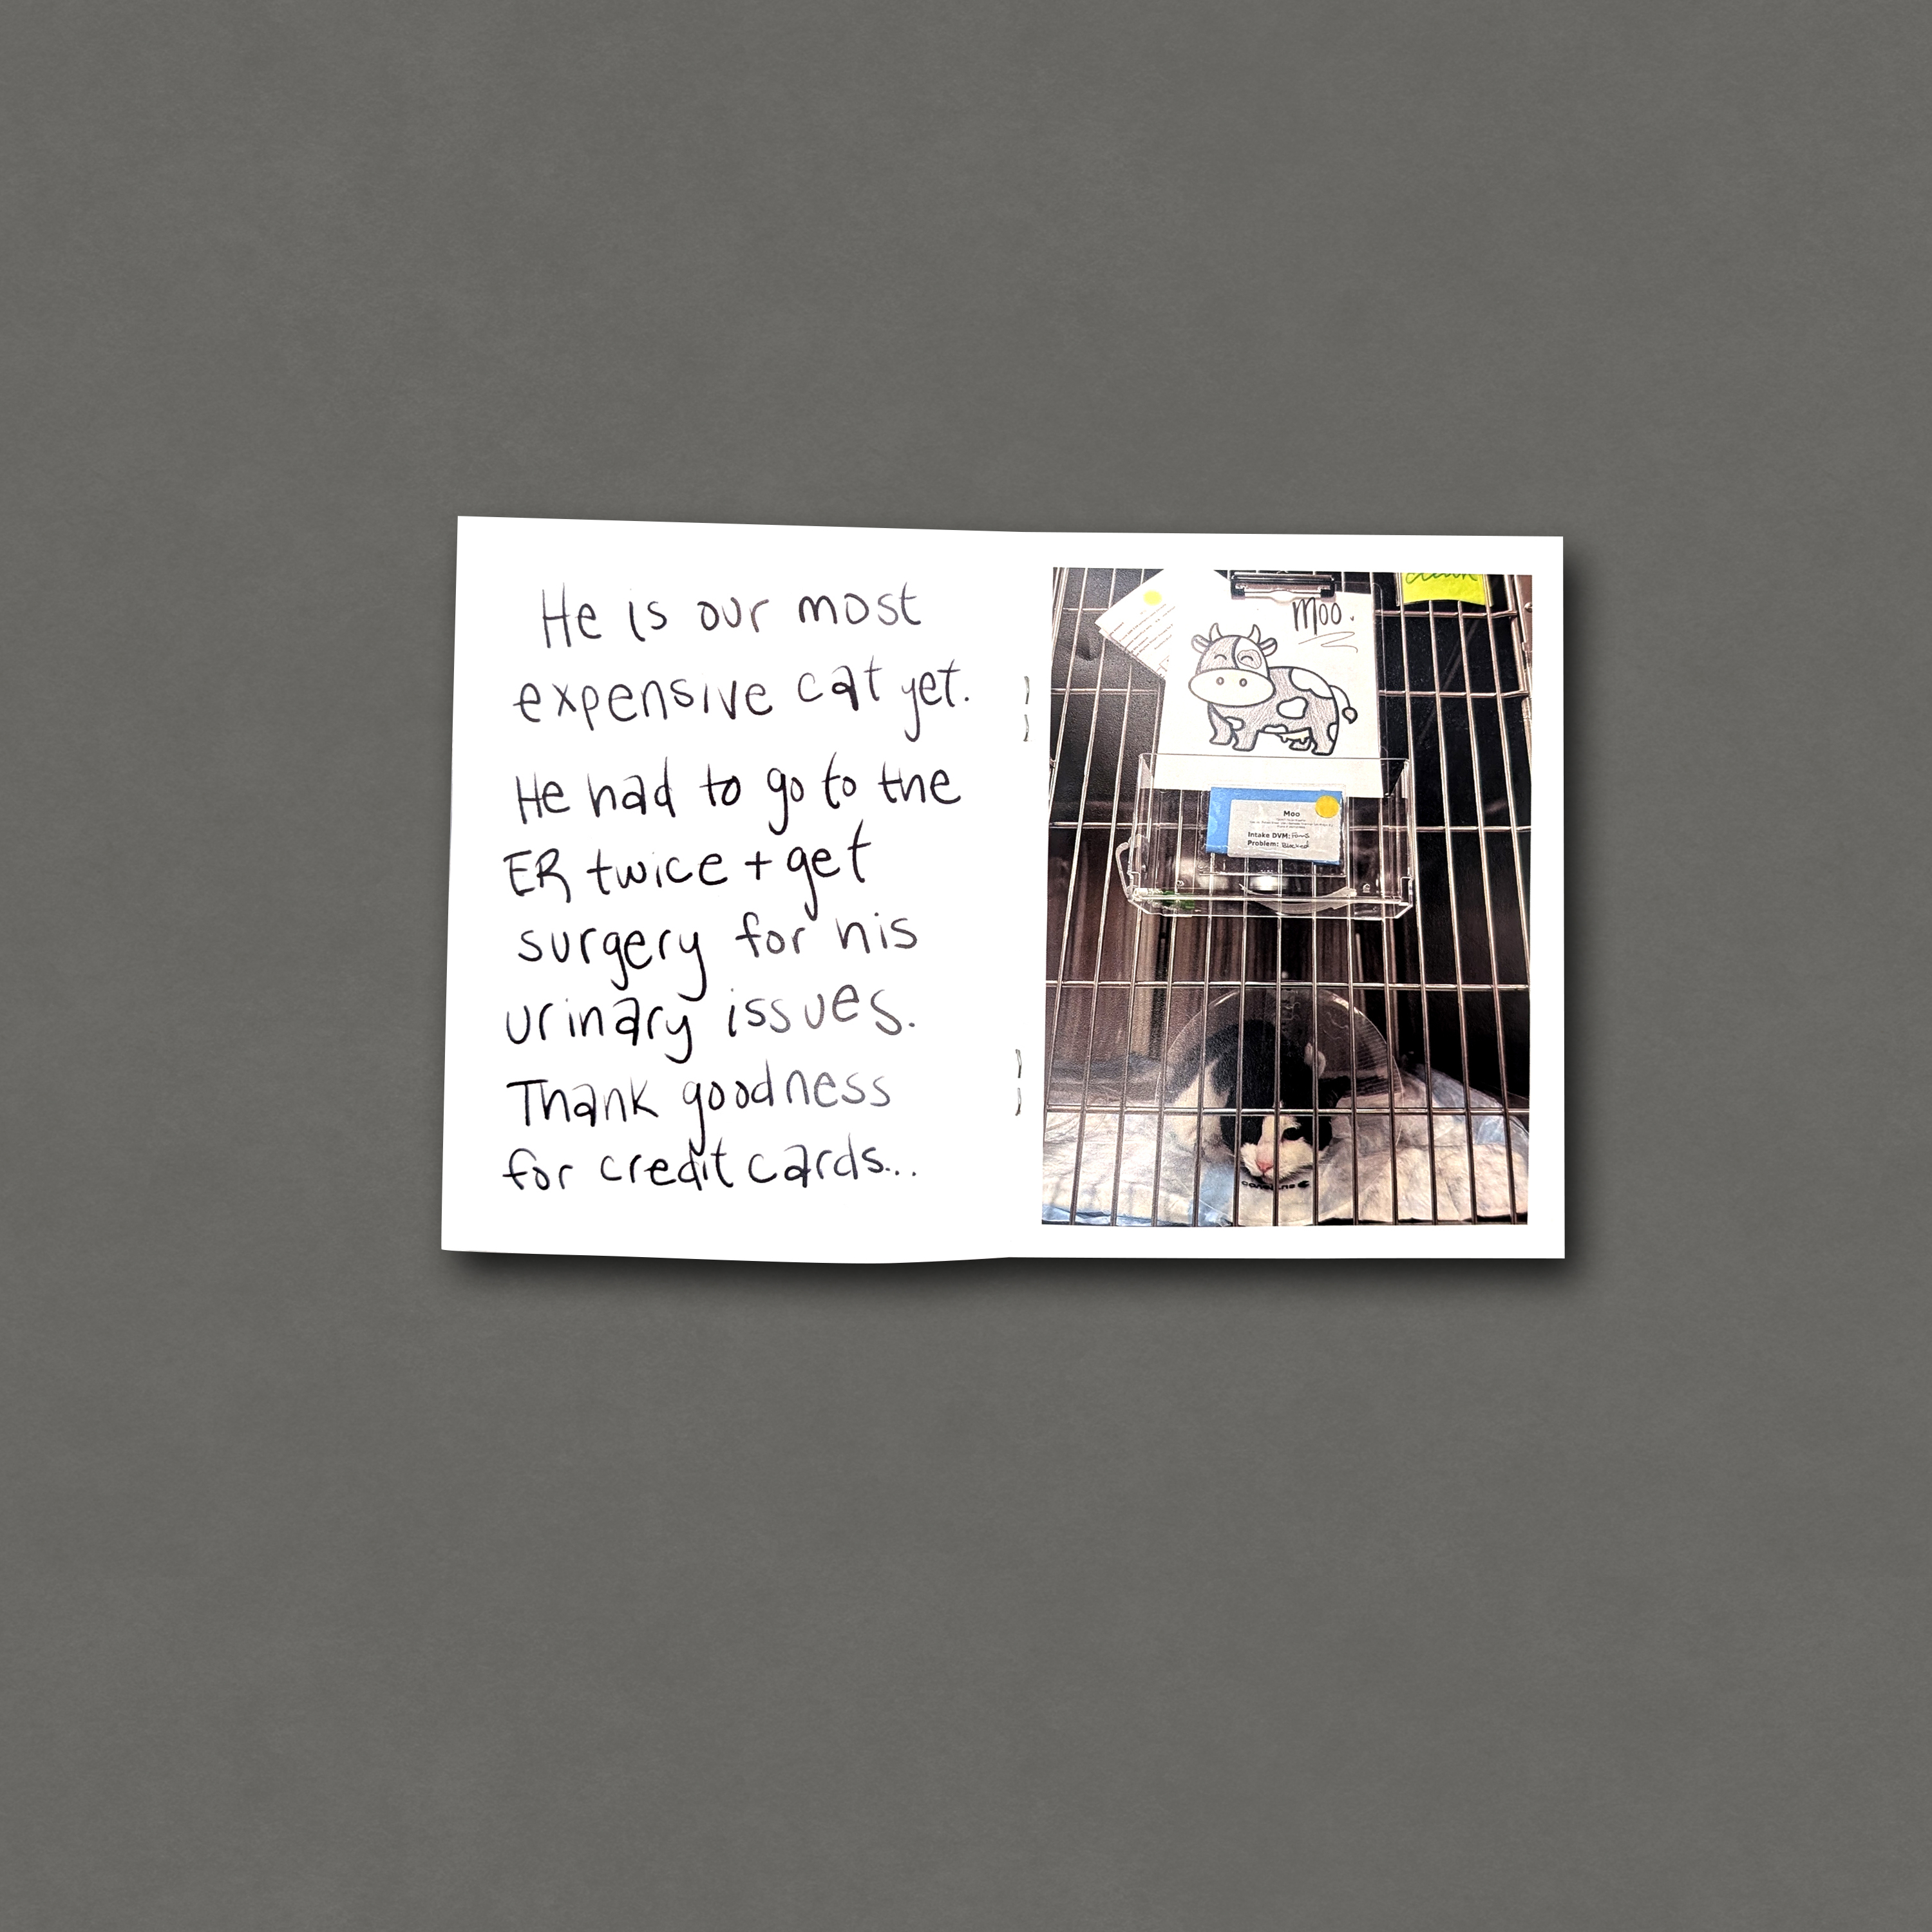 He is our most
expensive cat yet.
He had to go to the
ER twice + get
surgery for his
urinary issues.
Thank goodness
for credit cards...
Moo.
Moo
Intake DVM:
Problem: Blocked